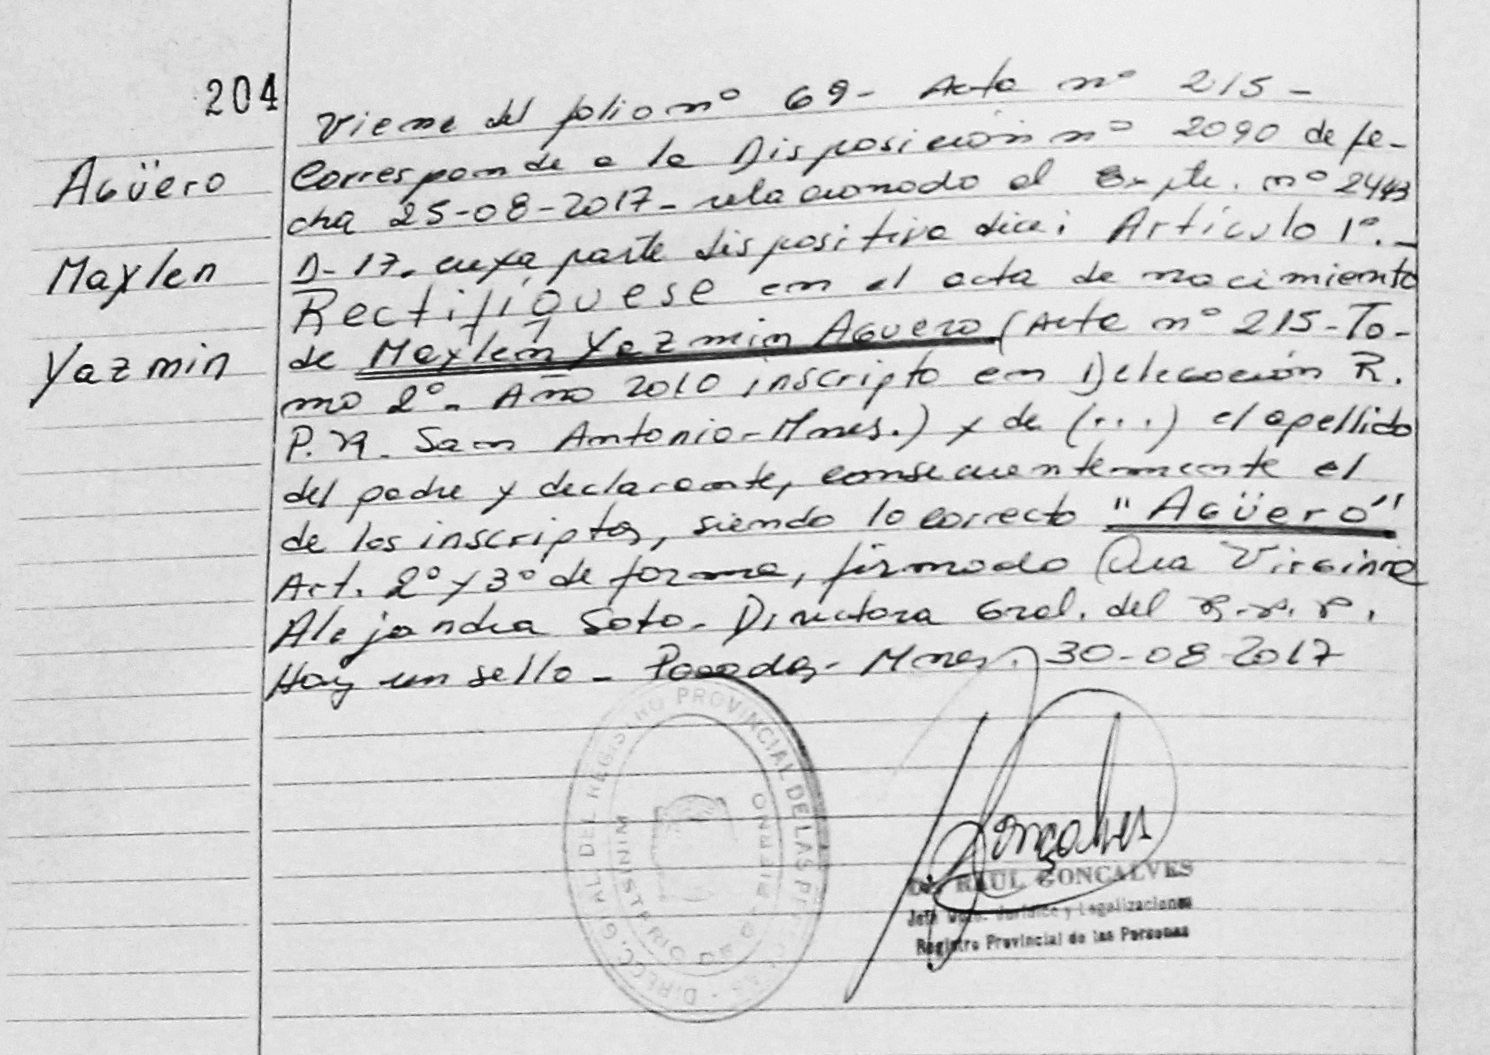 204
Agüero
Maylen
Yazmin
Viene del folio nº 69- Acta nº 215-
Corresponde a la Disposición nº 2090 de fe-
cha 25-08-2017- relacionado al Expte. nº 2443
D-17. cuya parte dispositiva dice: Artículo 1º.-
Rectifíquese en el acta de nacimiento
de Maylen Yazmin Aguero (Acta nº 215-To-
mo 2º- Año 2010 inscripto en Delegación R.
P. San Antonio-Mnes.) y de (...) el apellido
del padre y declarante, consecuentemente el
de los inscriptos, siendo lo correcto "Agüero"
Art. 2º y 3º de forma, firmado Dra Virginia
Alejandra Soto- Directora Gral. del R.P.P.
Hay un sello - Posadas- Mnes. 30-08-2017
DIRECC. GRAL DEL REGISTRO PROVINCIAL DE LAS PERSONAS
MINISTERIO DE GOBIERNO
Gonçalves
Dr. RAUL GONCALVES
Jefe Dpto. Jurídico y Legalizaciones
Registro Provincial de las Personas